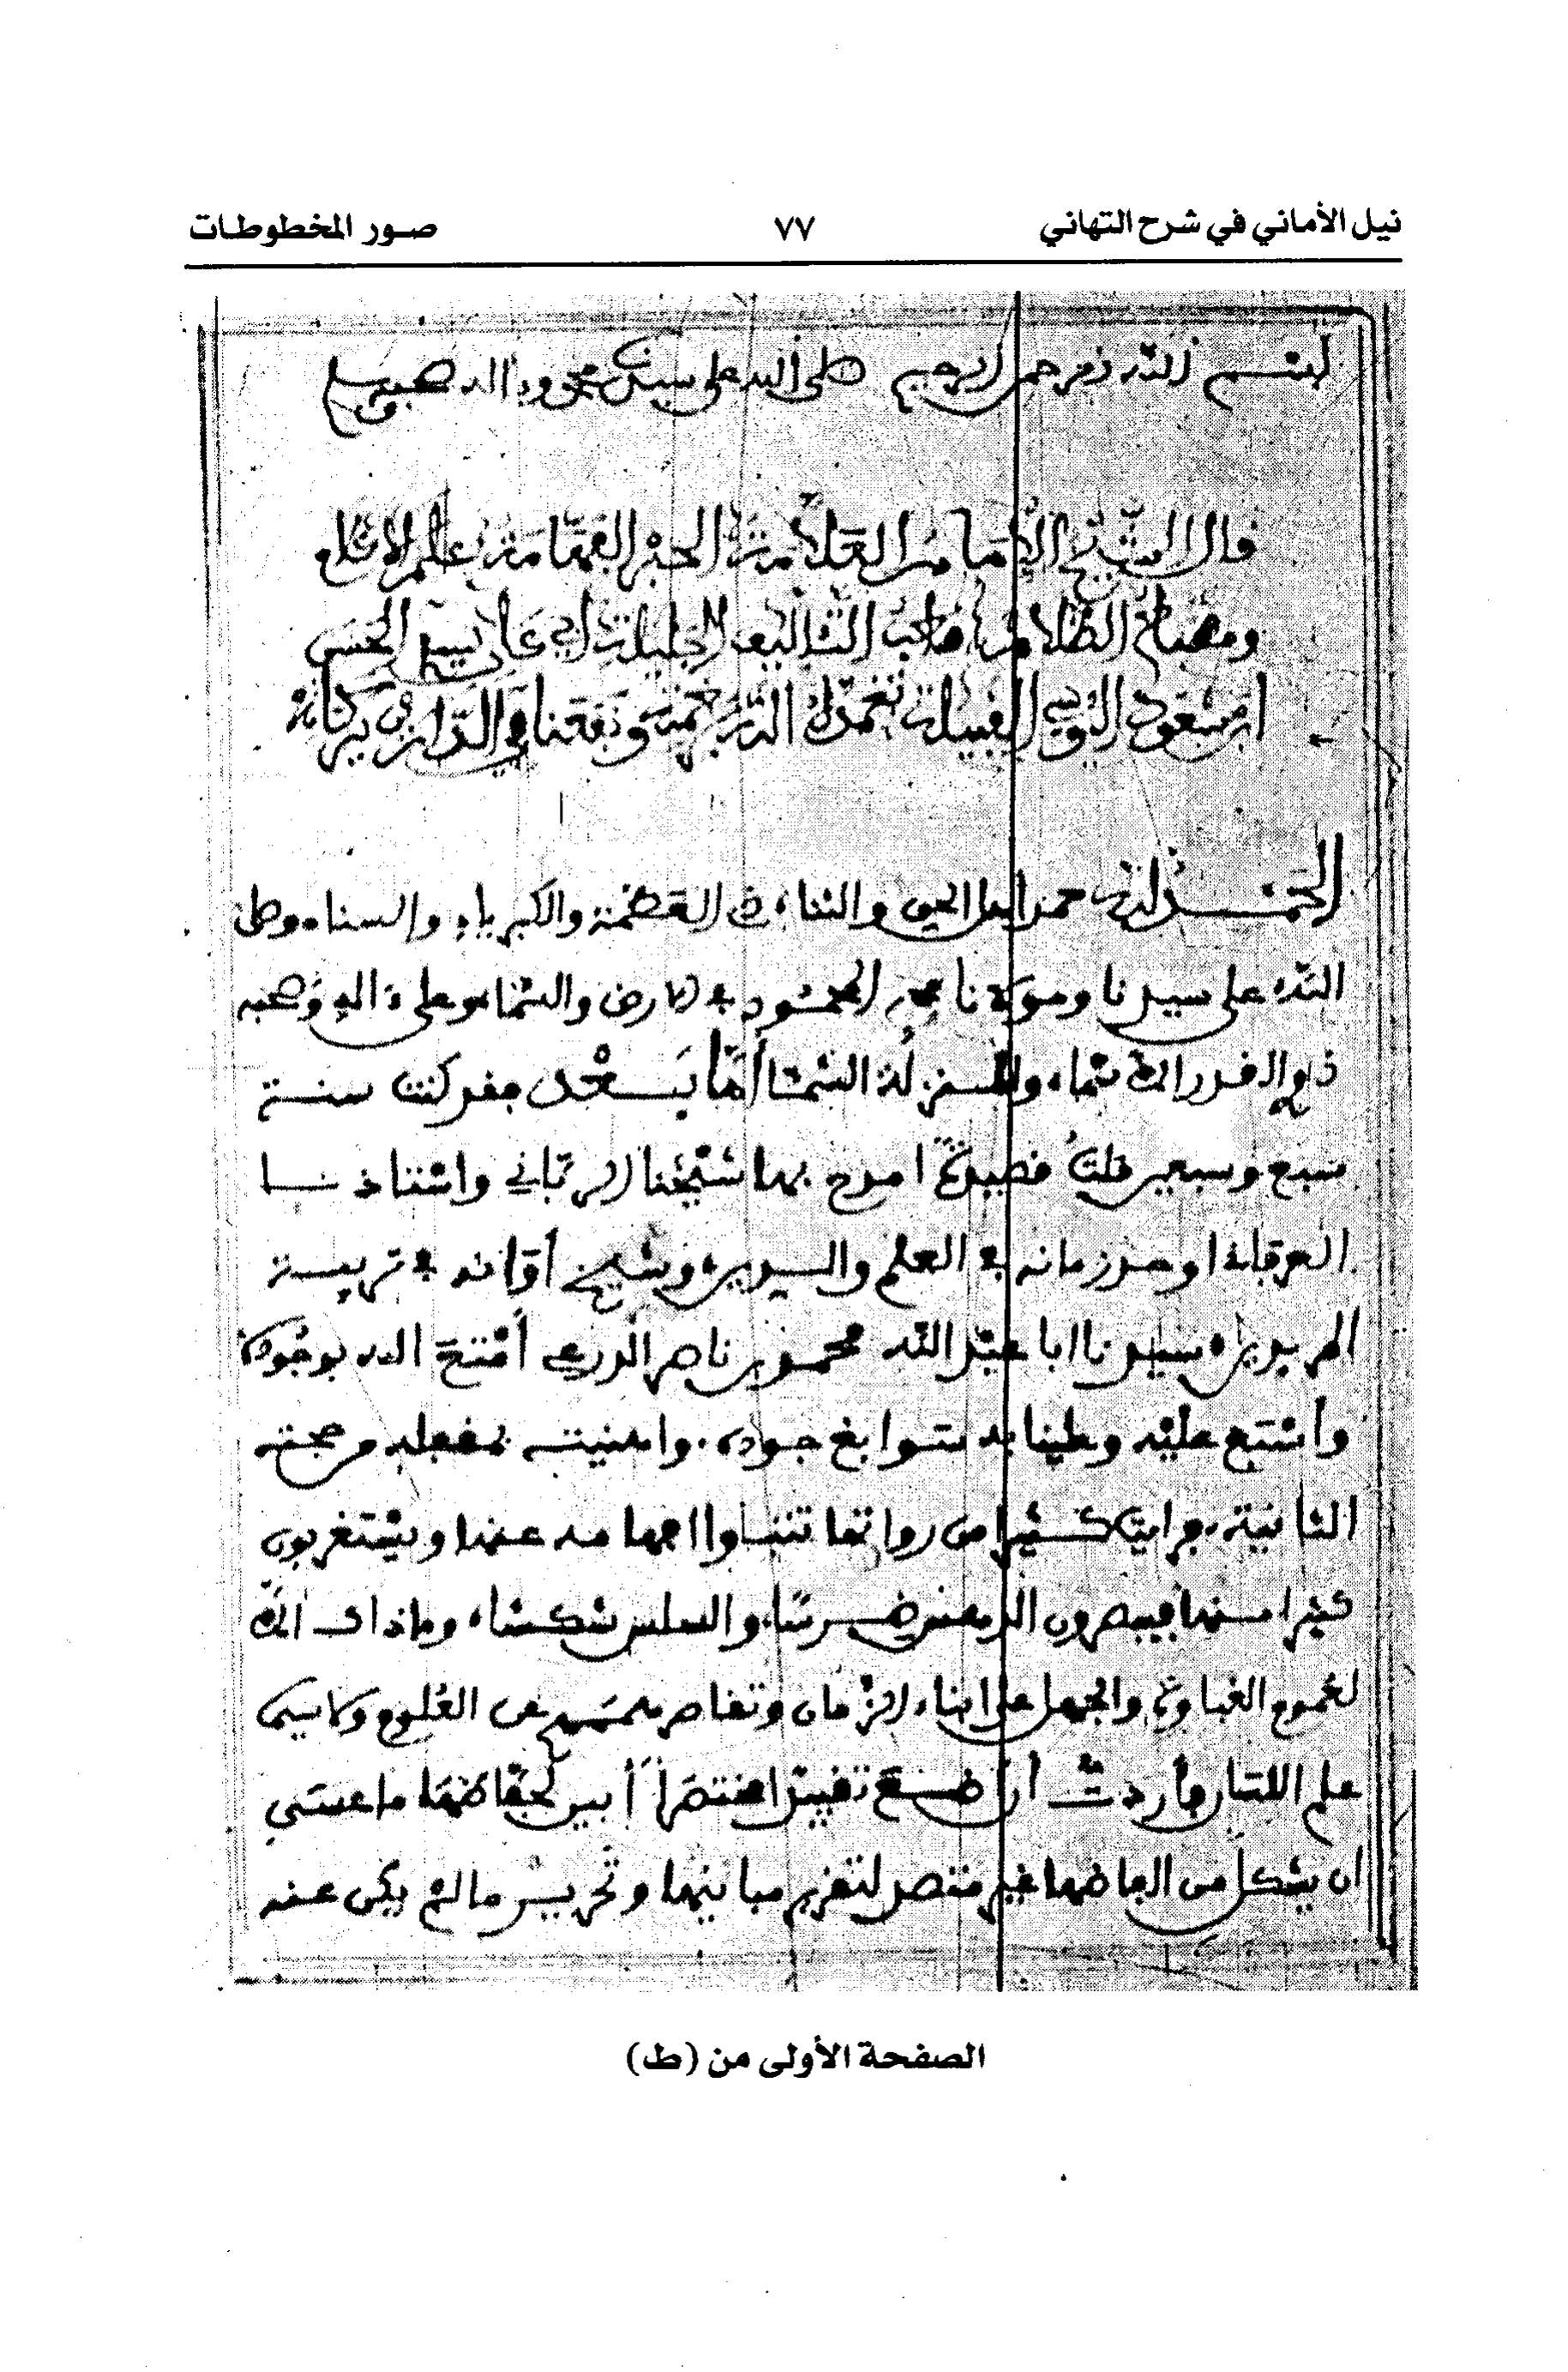 نيل الأماني في شرح التهاني ٧٧ صور المخطوطات
بسم الله الرحمن الرحيم صلى الله على سيدنا محمد وءاله وصحبه وسلم
قال الشيخ الإمام العلامة الحبر الفهامة علم الأعلام
ومصباح الظلام صاحب التئاليف الجليلة أبي علي سيدي الحسن
بن مسعود اليوسي القبيلة تغمده الله برحمته ونفعنا في الدارين ببركاته
الحمد لله حمدا يملأ والثناء ذي العظمة والكبرياء والسناء وصلى
الله على سيدنا ومولانا محمد المحمود في الارض والسماء وعلى ءاله وصحبه
ذوي القدر الأسمى والمنزلة الشماء أما بعد فقد كنت سنة
سبع وسبعين قلت قصيدة امدح بها شيخنا الرباني واستاذنا
العرفاني اوحد زمانه في العلم والدين وشيخ أوانه في تربية
المريدين سيدنا ابا عبد الله محمد بن ناصر الدرعي أمتع الله بوجوده
وأسبغ عليه وعلينا به سوابغ جوده من محبته
الثانية فرايت كثيرا من رواتها عنها ويستغربون
كثيرا منها فيبصرون الدمس ضرسا والسلس شكسا وما ذاك الا
لعموم الغباوة والجهل على ابناء الزمان وتقاصر هممهم عن العلوم ولا سيما
علم اللسان وأردت أن أضع تفسيرا مختصرا أبين لحفاظها ما عسى
ان يشكل من الفاظها غير منتصر لتقرير مبانيها وتحرير ما لم يكن عنه
الصفحة الأولى من (ط)